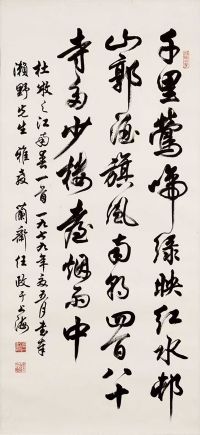 千里鶯啼綠映紅水邨
山郭酒旗風南朝四百八十
寺多少樓臺烟雨中
杜牧之江南春一首一九七九年夏五月書奉
瀨野先生雅教 蘭齋任政于上海